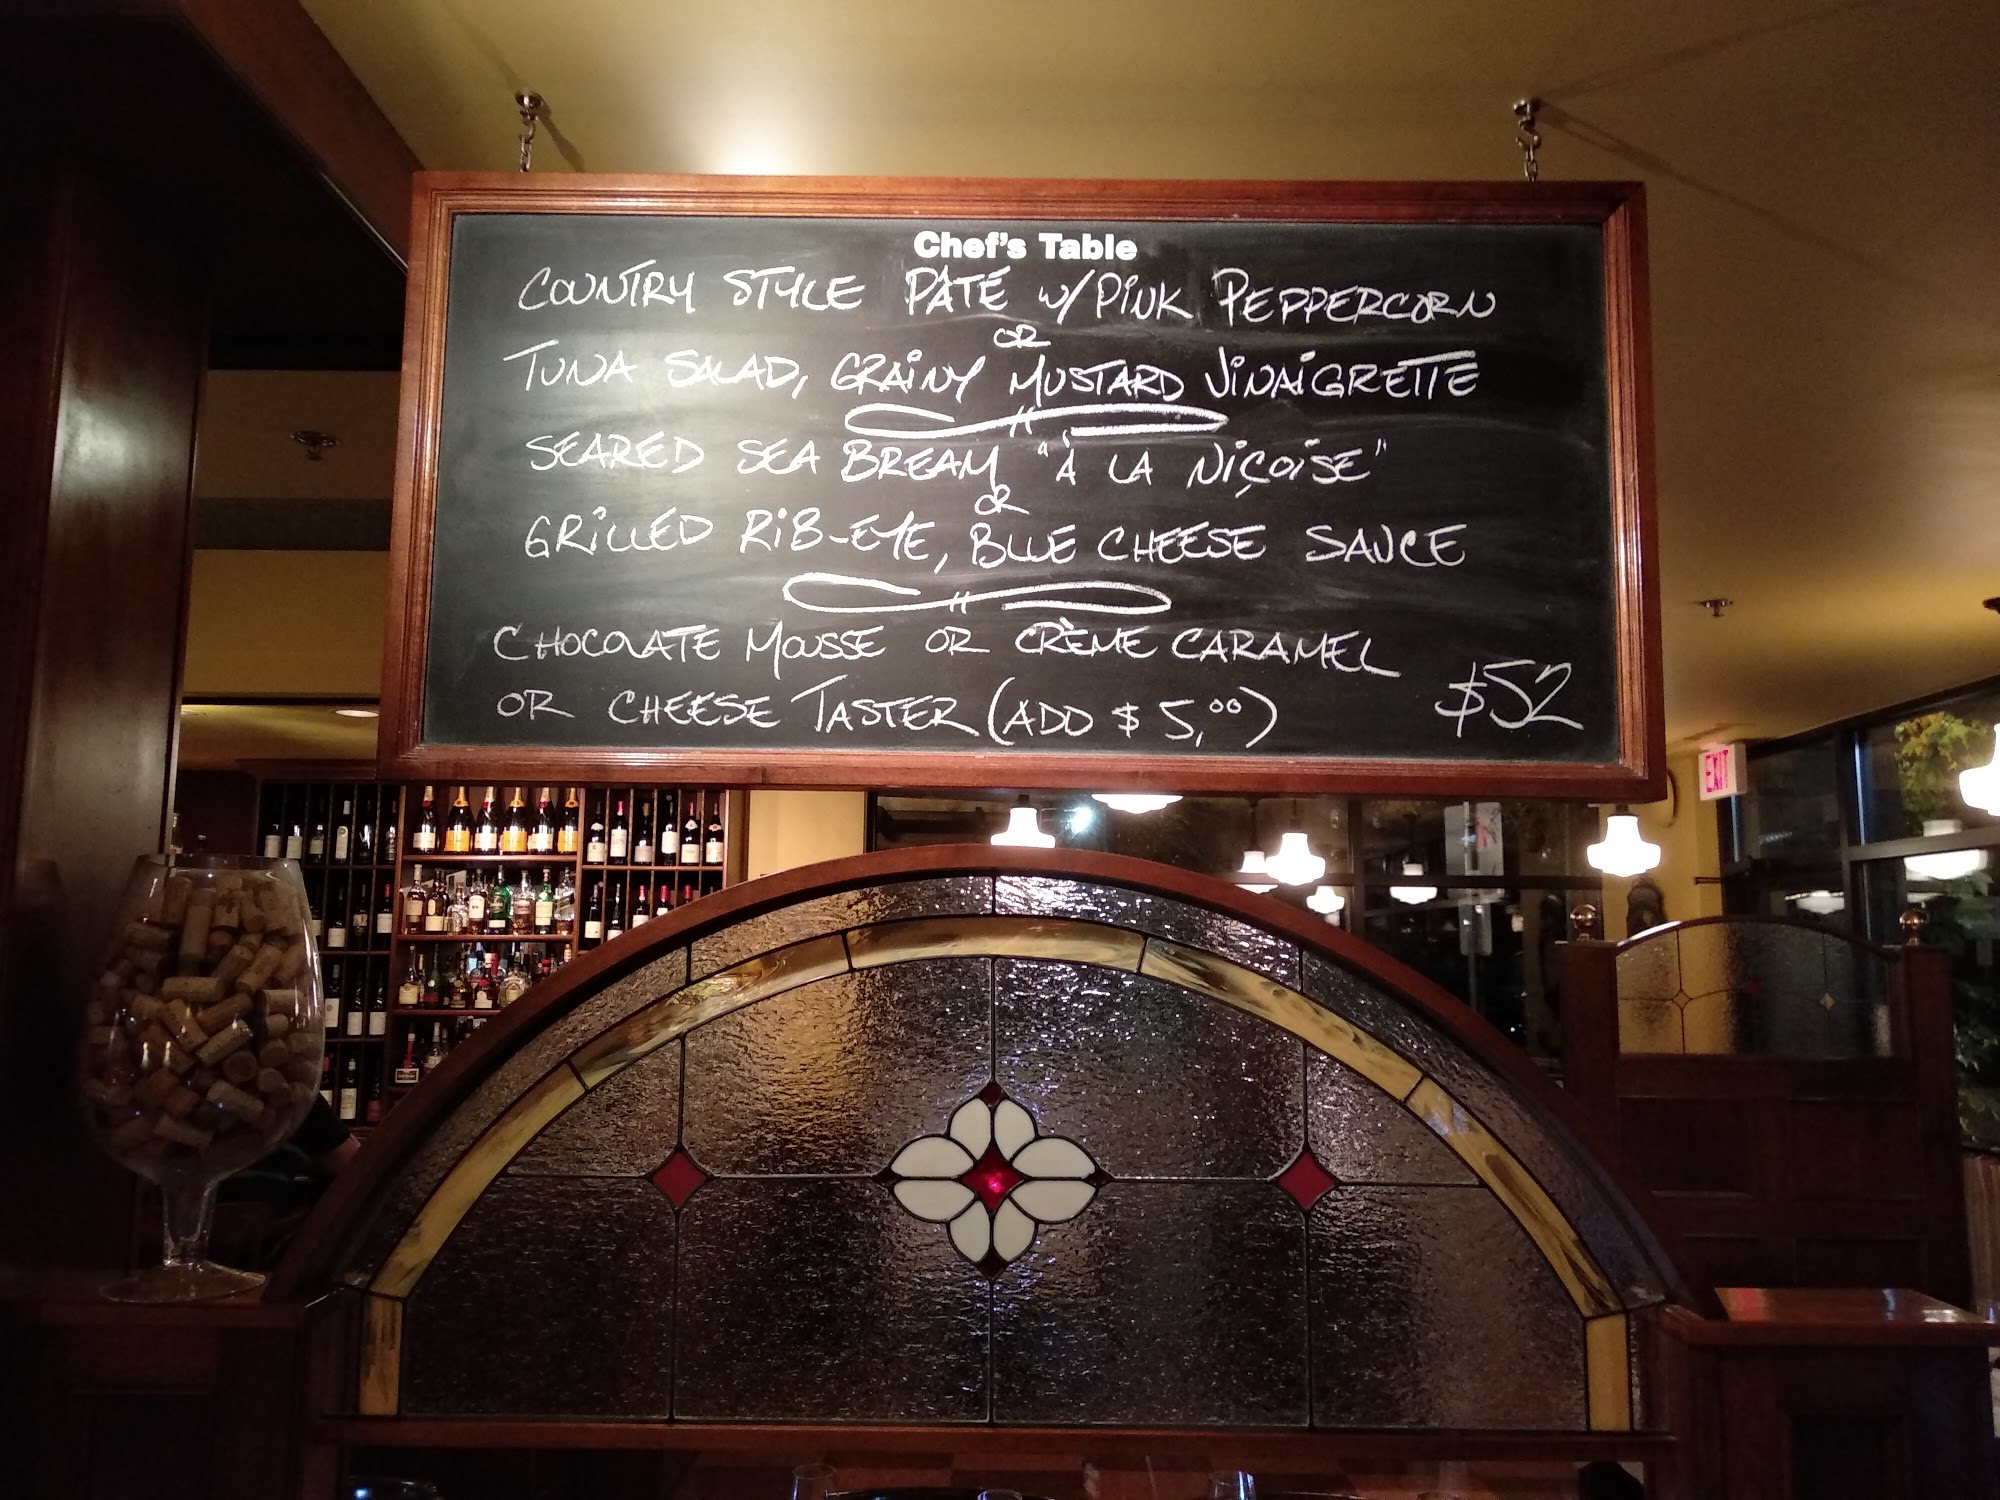 Chef's Table
COUNTRY STYLE PÂTÉ w/ PINK PEPPERCORN
OR
TUNA SALAD, GRAINY MUSTARD VINAIGRETTE
SEARED SEA BREAM "À LA NIÇOISE"
OR
GRILLED RIB-EYE, BLUE CHEESE SAUCE
CHOCOLATE MOUSSE OR CRÈME CARAMEL
OR CHEESE TASTER (ADD $5,00)
$52
EXIT